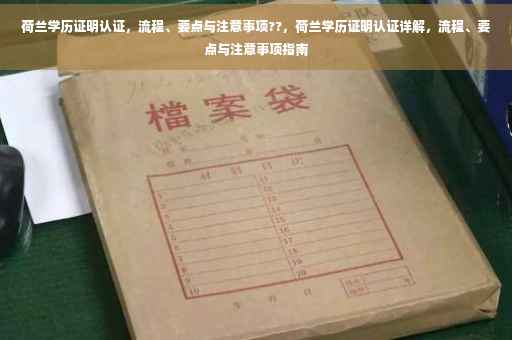 荷兰学历证明认证，流程、要点与注意事项??，荷兰学历证明认证详解，流程、要
点与注意事项指南
檔案袋
材料目次
1 11
2 12
3 13
4 14
5 15
6 16
7 17
8 18
9 19
10 20
年 月 日